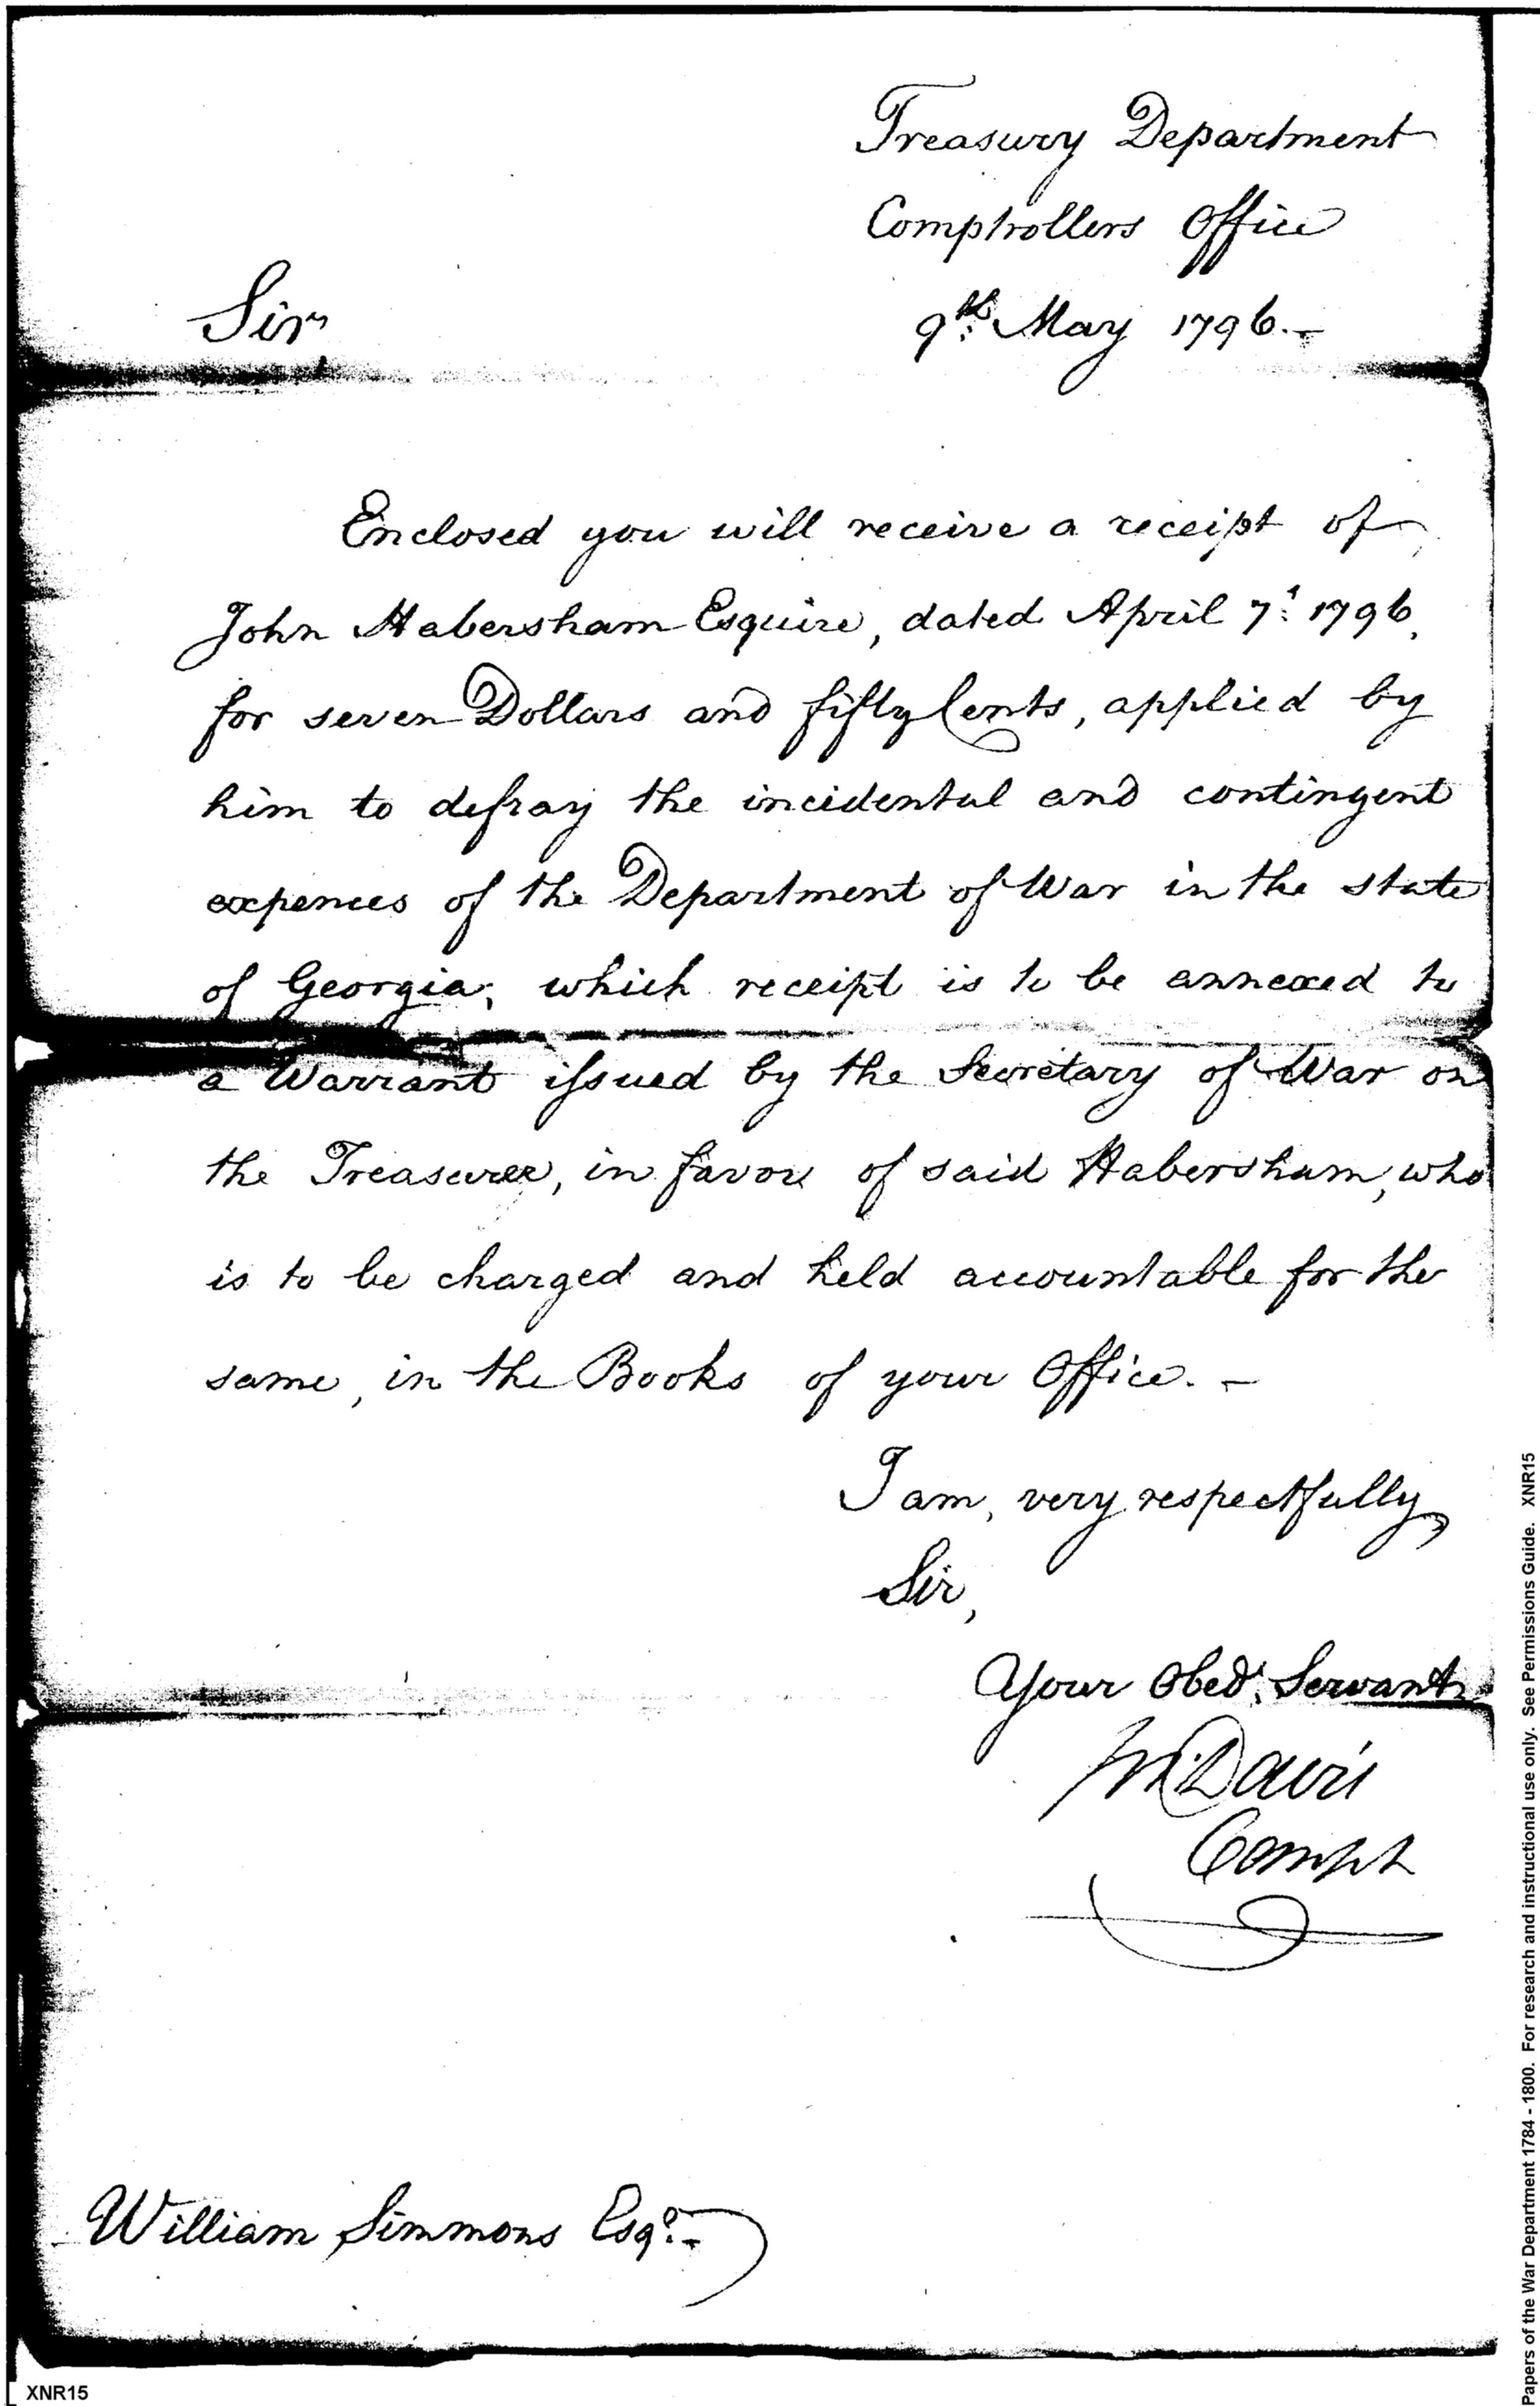 Treasury Department
Comptrollers Office
9th. May 1796.-
Sir
Enclosed you will receive a receipt of
John Habersham Esquire, dated April 7: 1796,
for seven Dollars and fifty Cents, applied by
him to defray the incidental and contingent
expences of the Department of War in the state
of Georgia; which receipt is to be annexed to
a Warrant issued by the Secretary of War on
the Treasurer, in favor of said Habersham, who
is to be charged and held accountable for the
same, in the Books of your Office. -
I am, very respectfully,
Sir,
Your Obedt. Servant,
Davis
Compt
William Simmons Esqr.-
XNR15
Papers of the War Department 1784 - 1800. For research and instructional use only. See Permissions Guide. XNR15